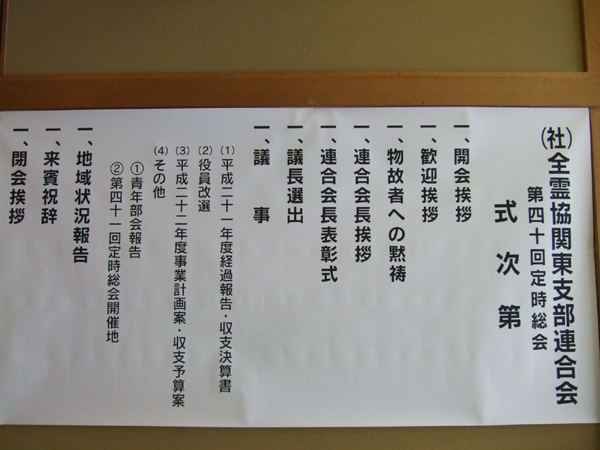 (社)全霊協関東支部連合会
第四十回定時総会
式次第
一、開会挨拶
一、歓迎挨拶
一、物故者への黙祷
一、連合会長挨拶
一、連合会長表彰式
一、議長選出
一、議　事
(1)平成二十一年度経過報告・収支決算書
(2)役員改選
(3)平成二十二年度事業計画案・収支予算案
(4)その他
①青年部会報告
②第四十一回定時総会開催地
一、地域状況報告
一、来賓祝辞
一、閉会挨拶